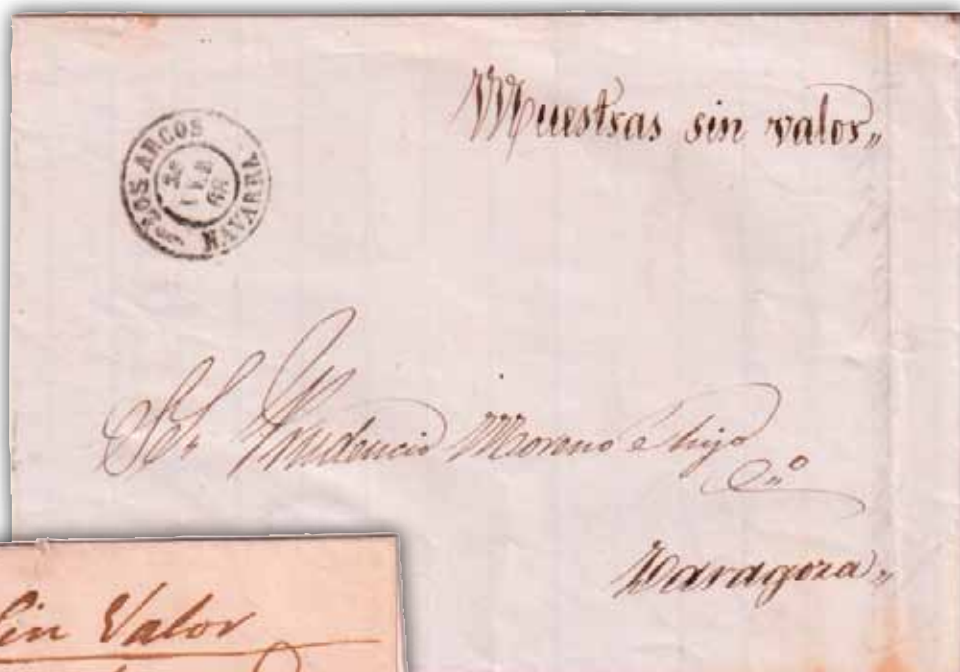 Muestras sin valor„
LOS ARCOS
NAVARRA
68
Prudencio Moreno é hijo
Zaragoza„
Sin Valor